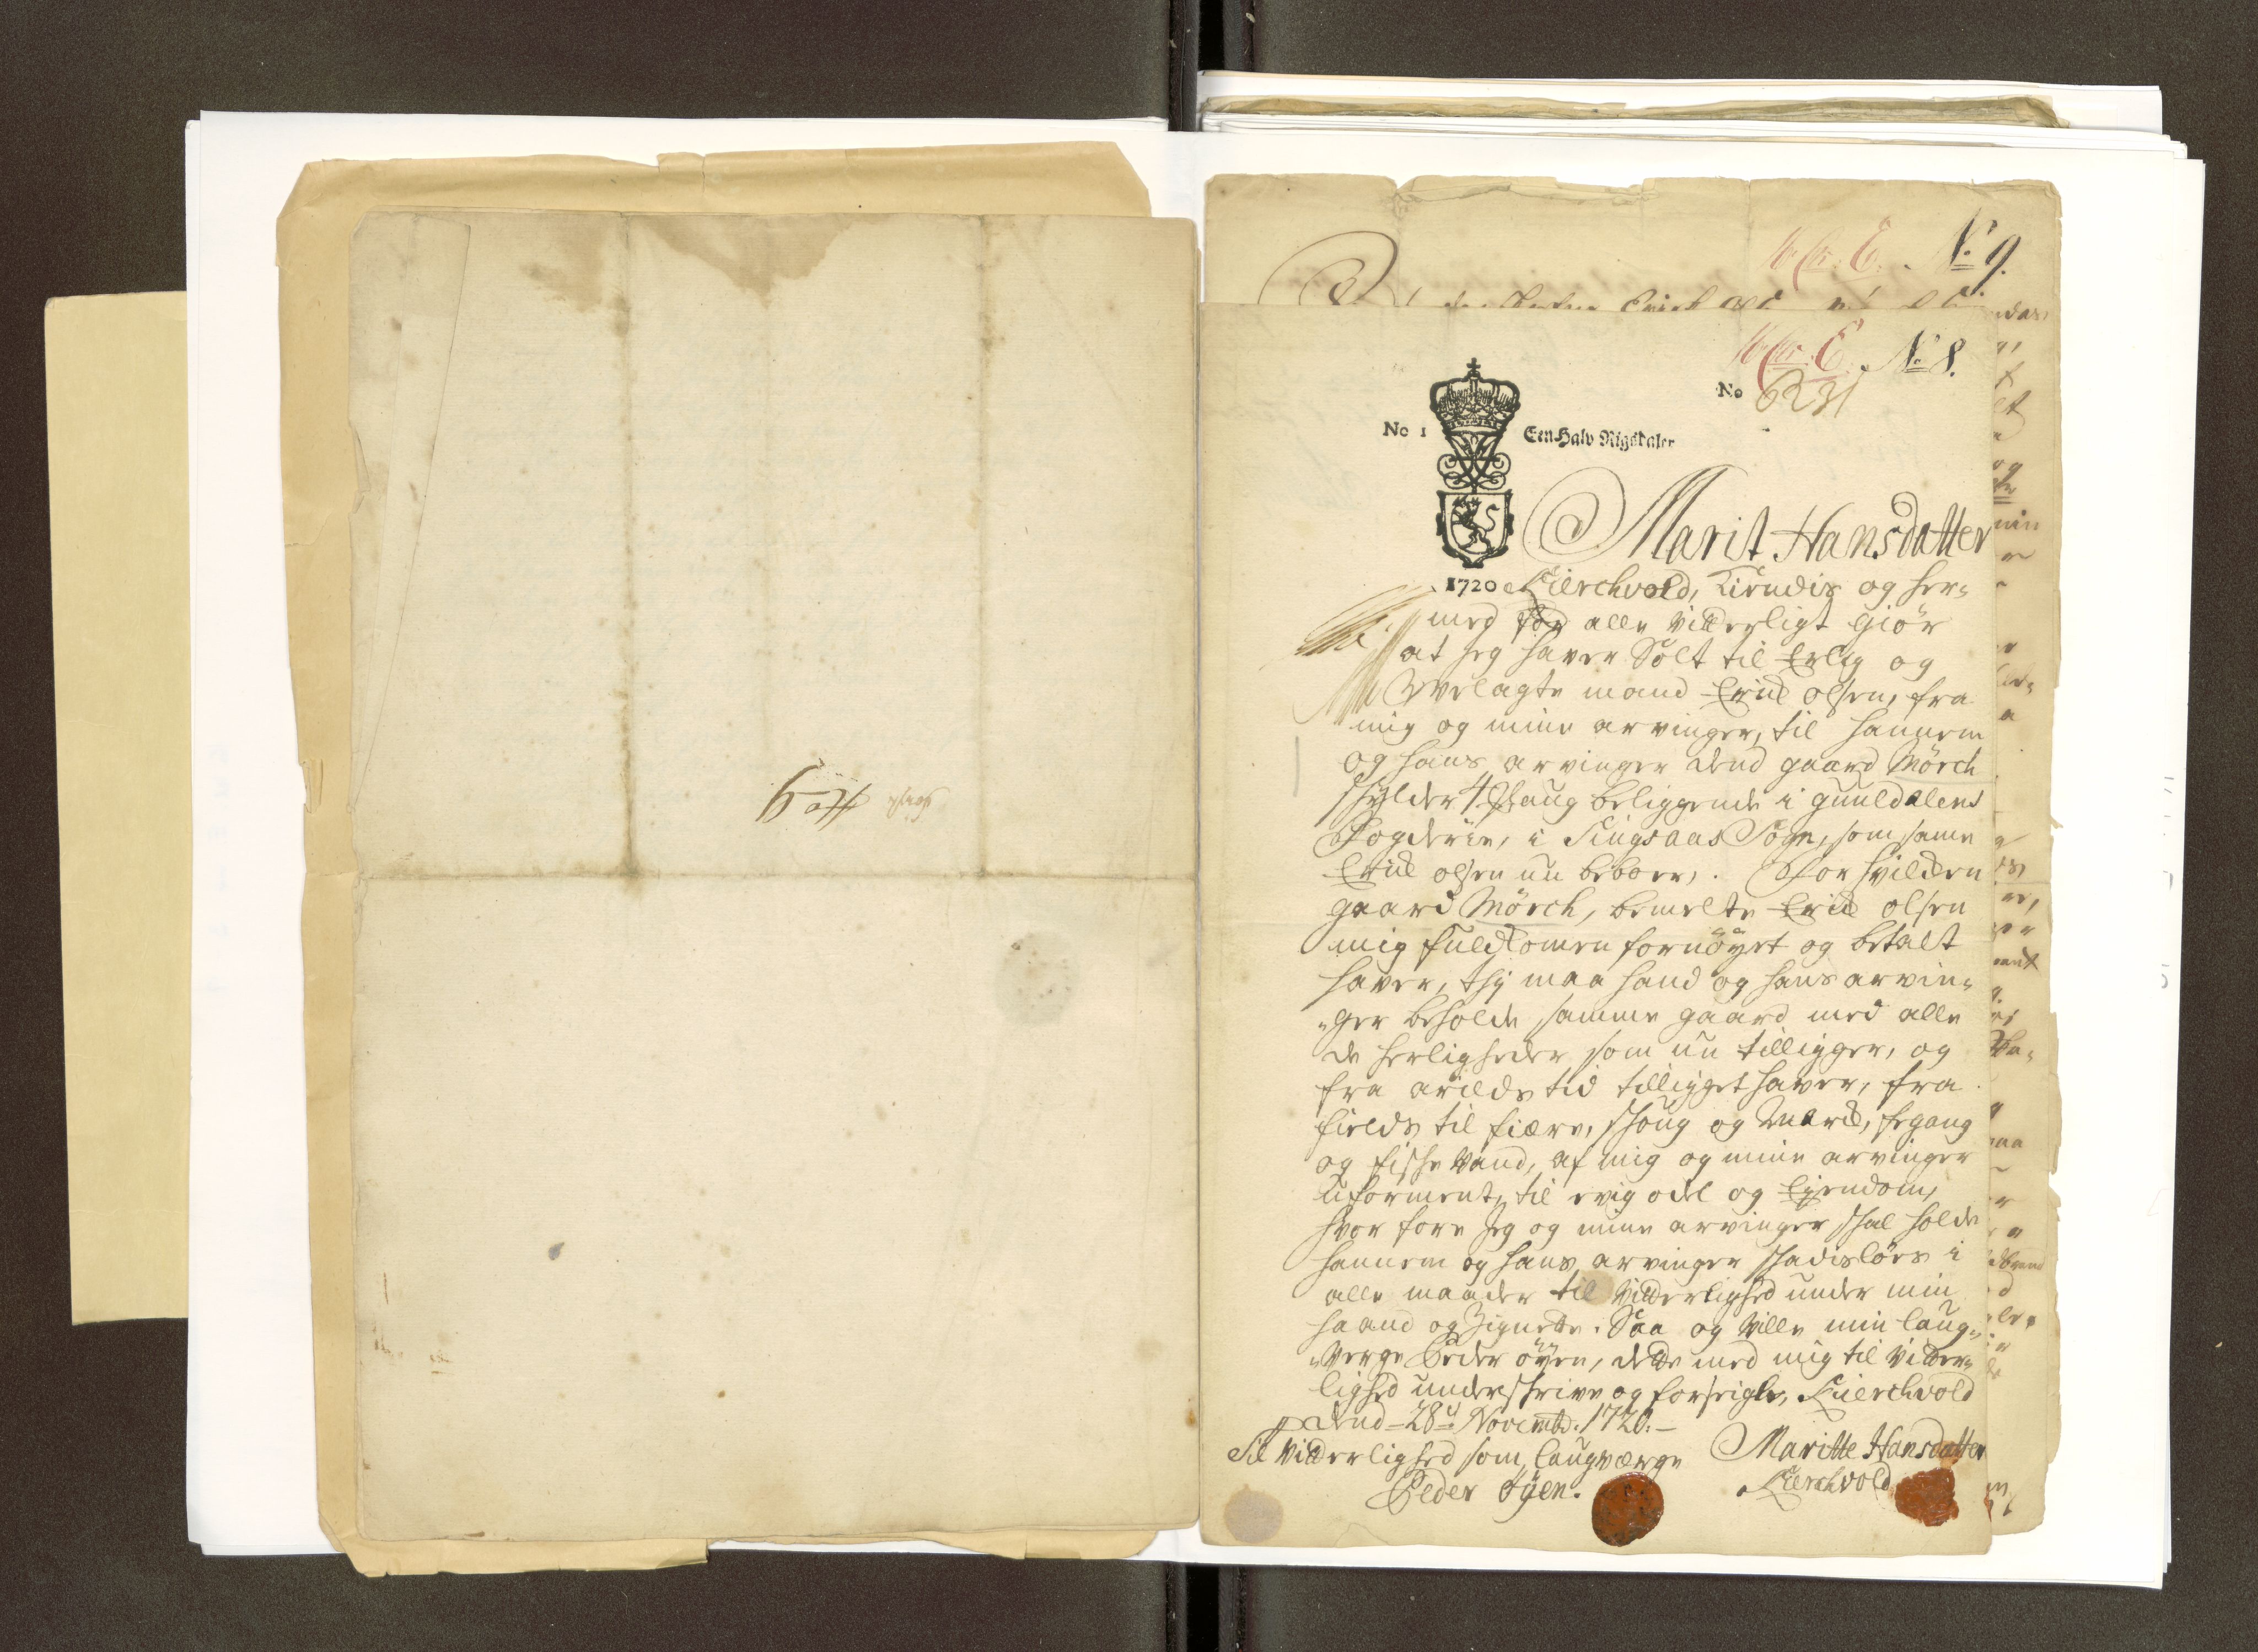 No 9.
N.o 9.
E. N.o 8.
No 6231
No 1 Een Halv Rigsdaler
1720
Marit Hansdatter
Kierchvold, Kiendis og her-
med for alle Vitterligt Giör
at jeg haver Sölt til Erlig og
Velagte mand Erick olsen, fra
mig og mine arvinger, til hannem
og hans arvinger dend gaard Mörch
skylder 4 Spand beliggende i Guuldalens
Fogderie, i Singsaas Sogn, som same
Erick olsen nu beboer, . For hvilcken
gaard Mörch, bemelte Erick olsen
mig fuldkomen fornöyet og betalt
haver, thj maa hand og hans arvin-
-ger beholde samme gaard med alle
de herligheder som nu tilligger, og
fra arilds tid tilligget haver, fra
fields til fiære, skoug og Marck, fegang
og fiske Vand, af mig og mine arvinger
uforment, til evig odel og Eyendom,
hvor fore jeg og mine arvinger skal holde
hannem og hans arvinger skadislöes i
alle maader til Vitterlighed under min
haand og Zignette. Saa og Ville min laug-
-Verge Peder öyen, dette med mig til Vitter-
lighed underskrive og forseigle, Kierchvold
dend 28de Novembr: 1720.
Til Vitterlighed som laugværge
Peder Öyen.
Maritte Hansdatter
Kierchvold